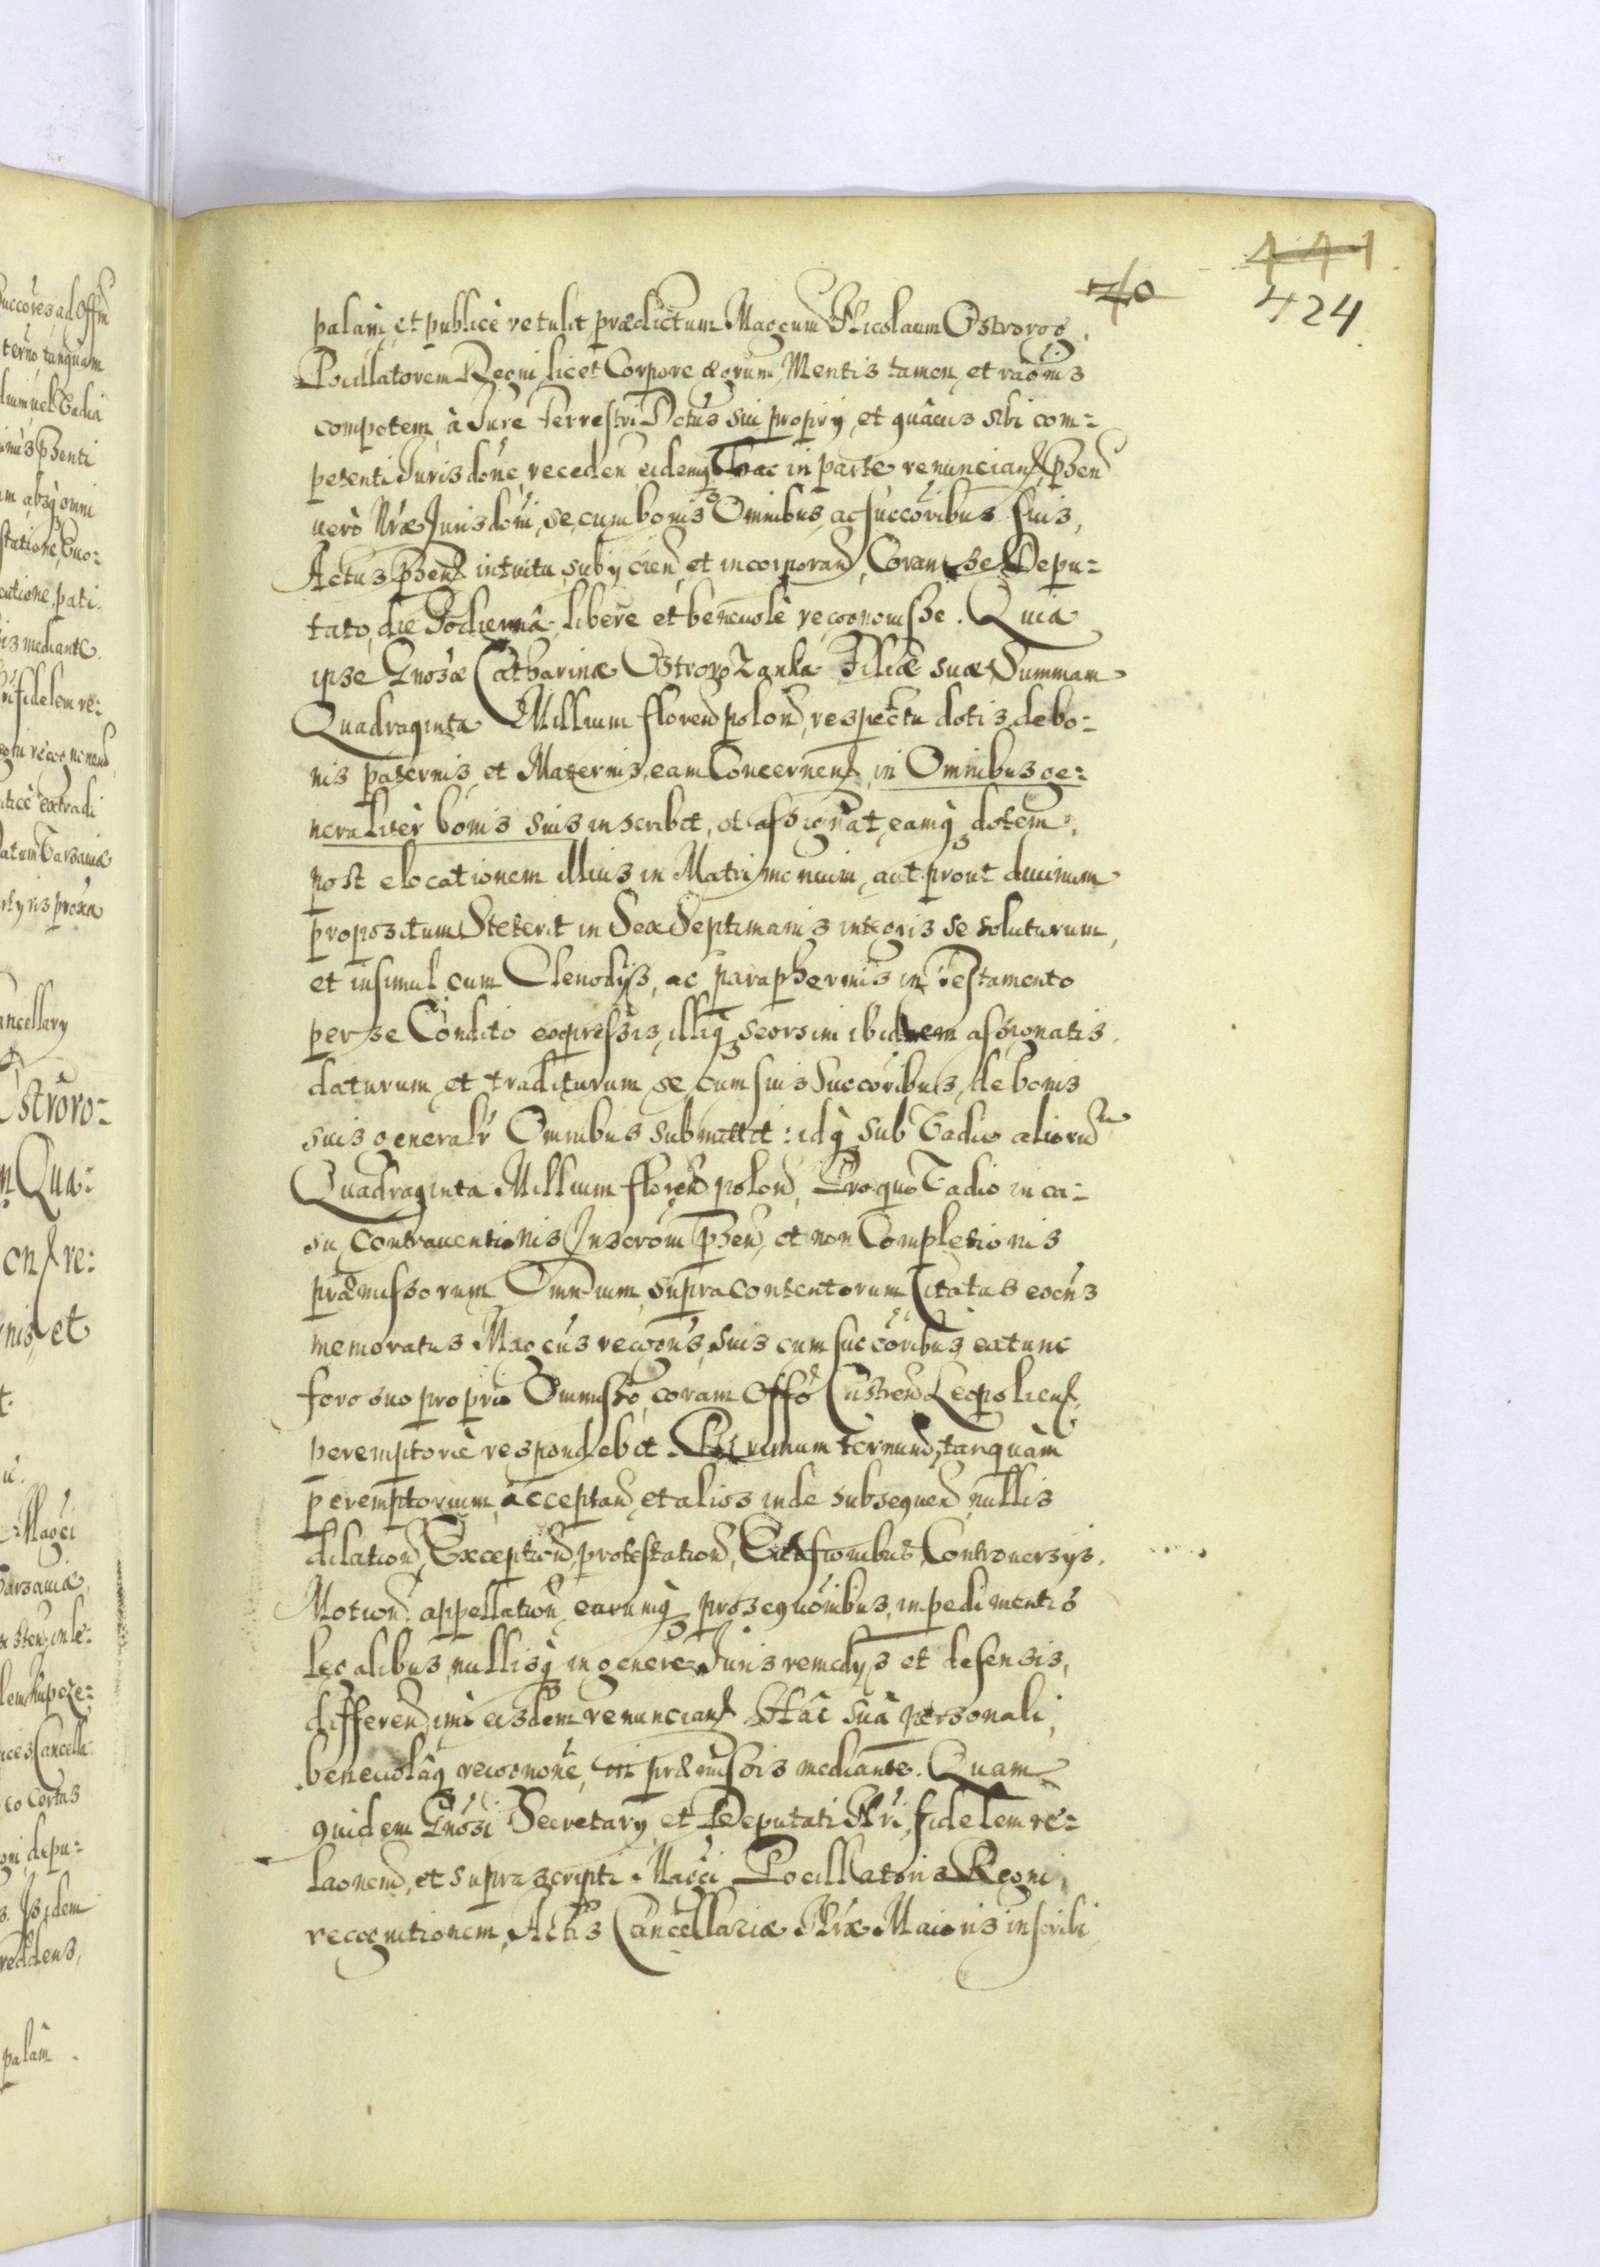 441
70
424
palam et publicè retulit prædictum Magcum Nicolaum Ostrorog
Pocillatorem Regni licet Corpore ægrum, Mentis tamen et raōnis
compotem, à Jure Terrestri Dctūs sui proprij, et quavis sibi com=
petenti Jurisdōne, receden, eidemq hac in parte renuncian, phen
verò Nræ Jurisdōni, se cum bonis Omnibus, ac succōribus suis,
Actus phen intuitu, subijcien et incorporan, Coram se Depu=
tato, die Hodiernâ, liberè et beneuolè recognouisse. Quia
ipse Gnosæ Catharinæ Ostrorożanka Filiæ suæ Summam
Quadraginta Millium floren polon, respectu dotis de bo=
nis paternis, et Maternis, eam Concernen, in Omnibus ge=
neraliter bonis suis inscribit, et assignat, eamq dotem,
post elocationem illius in Matrimonium, aut prout diuinum
propositum Steterit in Sex Septimanis integris se soluturum,
et insimul cum Clenodijs, ac paraphernis in Testamento
per se Condito expressis, illiq seorsim ibidem assignatis
daturum et traditurum se cum suis Succōribus, de bonis
suis generalr Omnibus submittit: idq sub Vadio aliorum
Quadraginta Millium floren polon, Pro quo Vadio in ca=
su Contrauentionis Inscrōm phen, et non Completionis
præmissorum Omnium, supra contentorum Citatus extūs
memoratus Magcus recogns, suis cum succōribus, extunc
foro suo proprio Ommisso, coram Offo Castren Leopolien,
peremptorie respondebit. Primum termin, tanquàm
peremptorium, acceptan, et alios inde subsequen, nullis
dilation, Exception, protestation, Euasionibus, Controuersijs,
Motion appellation, earumq prosequōnibus, impedimentis
legalibus, nullisq in genere Juris remedijs et defensis,
differen, imò eisdem renuncian Hâc suâ personali,
beneuolâq recognōne, in præmissis mediante. Quam
quidem Gnosi Secretarij, et Deputati Nri, fidelem re=
laonem, et suprascripti Magci Pocillatoris Regni,
recognitionem, Actis Cancellariæ Nræ Maioris inscribi